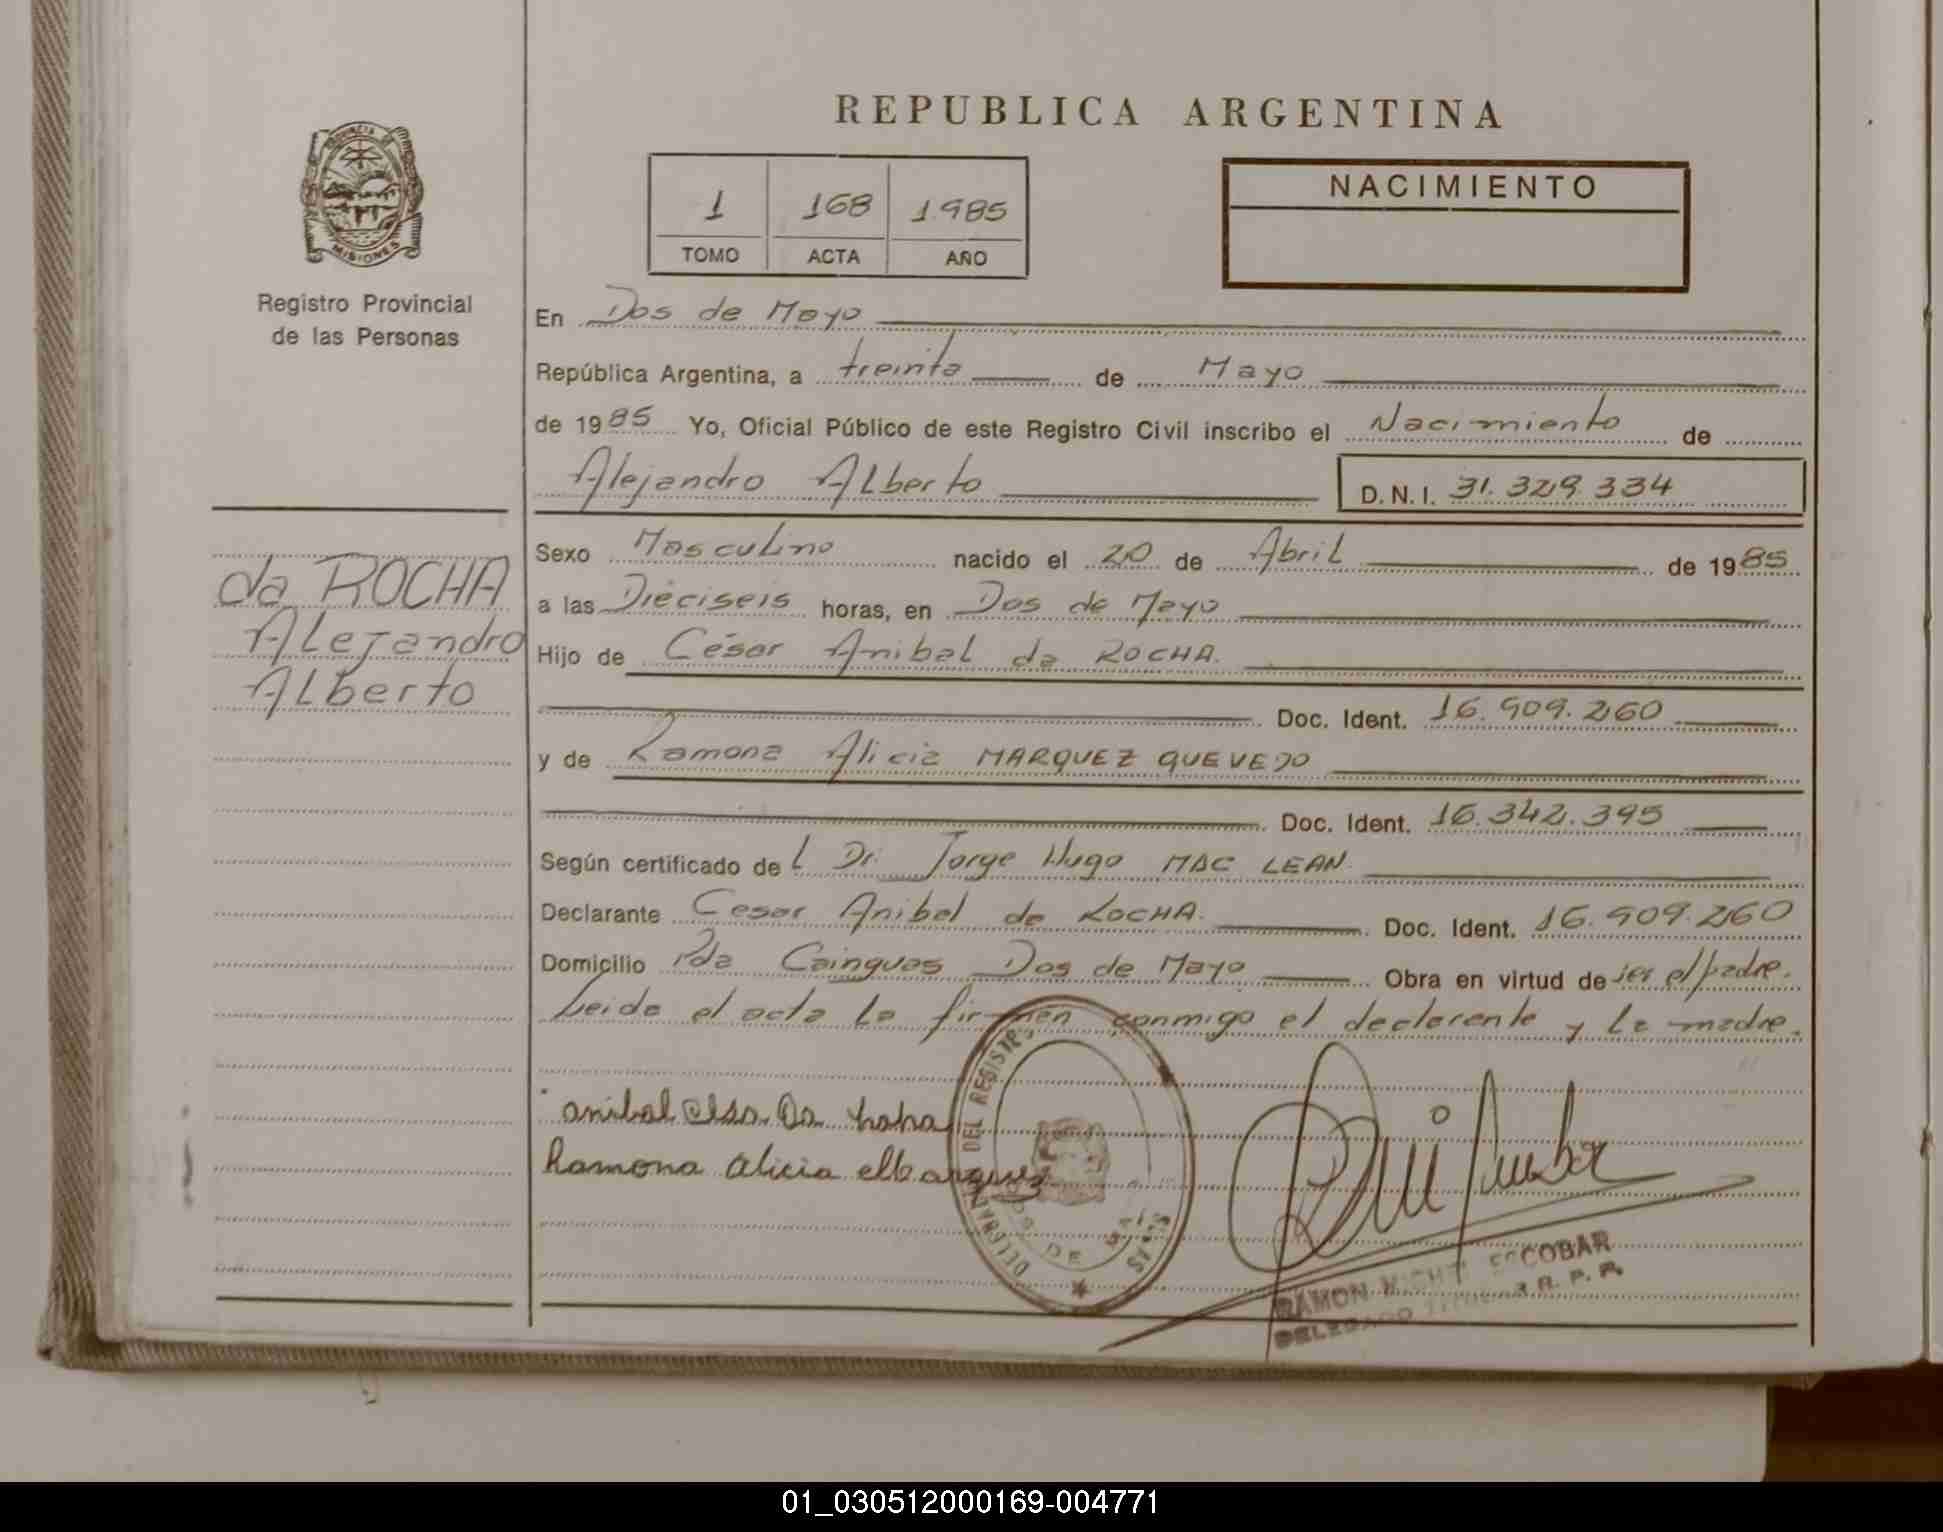 REPUBLICA ARGENTINA
PROVINCIA DE
MISIONES
Registro Provincial
de las Personas
1 168 1985
TOMO ACTA AÑO
NACIMIENTO
En Dos de Mayo
República Argentina, a treinta de Mayo
de 1985 Yo, Oficial Público de este Registro Civil inscribo el Nacimiento de
Alejandro Alberto D.N.I. 31.329.334
da ROCHA
Alejandro
Alberto
Sexo Masculino nacido el 20 de Abril de 1985
a las Dieciseis horas, en Dos de Mayo
Hijo de César Anibal da ROCHA.
Doc. Ident. 16.909.260
y de Ramona Alicia MARQUEZ QUEVEDO
Doc. Ident. 16.342.395
Según certificado del Dr. Jorge Hugo MAC LEAN.
Declarante Cesar Anibal da ROCHA. Doc. Ident. 16.909.260
Domicilio Pda Cainguas Dos de Mayo Obra en virtud de ser el padre.
Leida el acta la firman conmigo el declarante y la madre.
anibal Da
Ramona Alicia Marquez
DEL REGISTRO
DOS DE MAYO
RAMON ESCOBAR
DELEGADO TITULAR R. P. P.
01_030512000169-004771